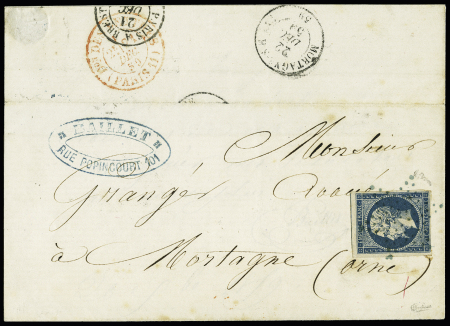 PARIS A BREST
21
DEC
MORTAGNE
22
DEC
53
MAILLET
RUE POPINCOURT 101
Monsieur
Grangér Avoué
à Mortagne (orne)